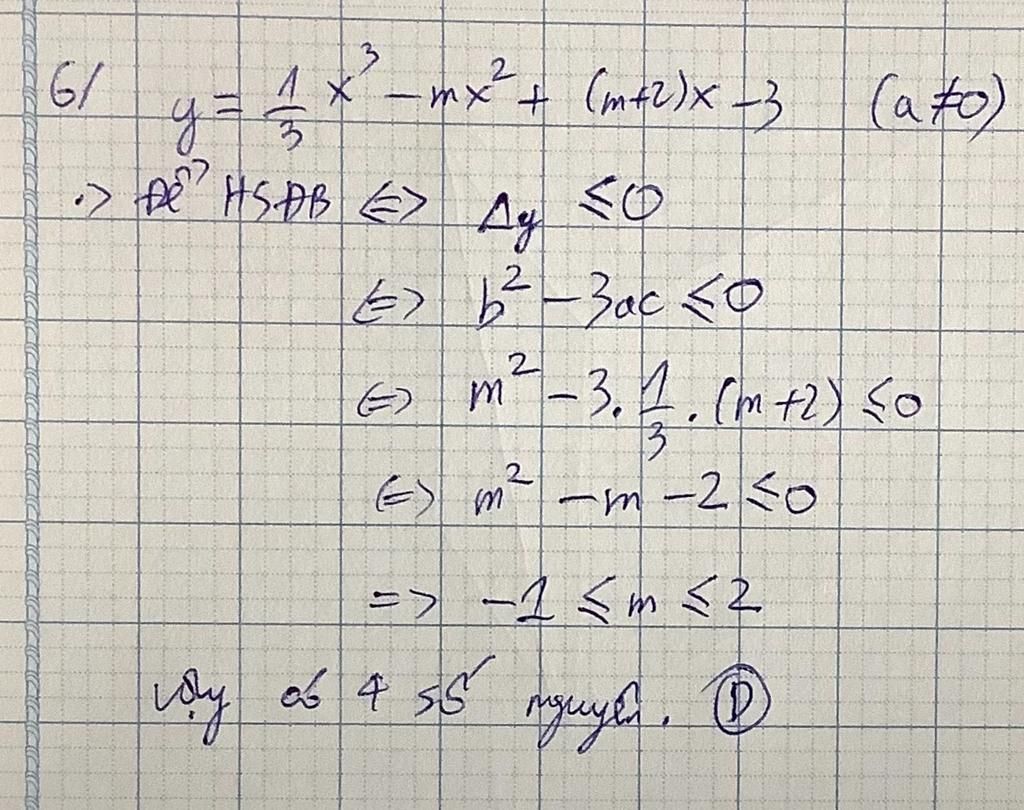 6/ y = 1/3 x³ - mx² + (m+2)x - 3 (a ≠ 0)
.> Để HSĐB <=> Δy ≤ 0
<=> b² - 3ac ≤ 0
<=> m² - 3. 1/3 . (m+2) ≤ 0
<=> m² - m - 2 ≤ 0
=> -1 ≤ m ≤ 2
vậy có 4 số nguyên. D